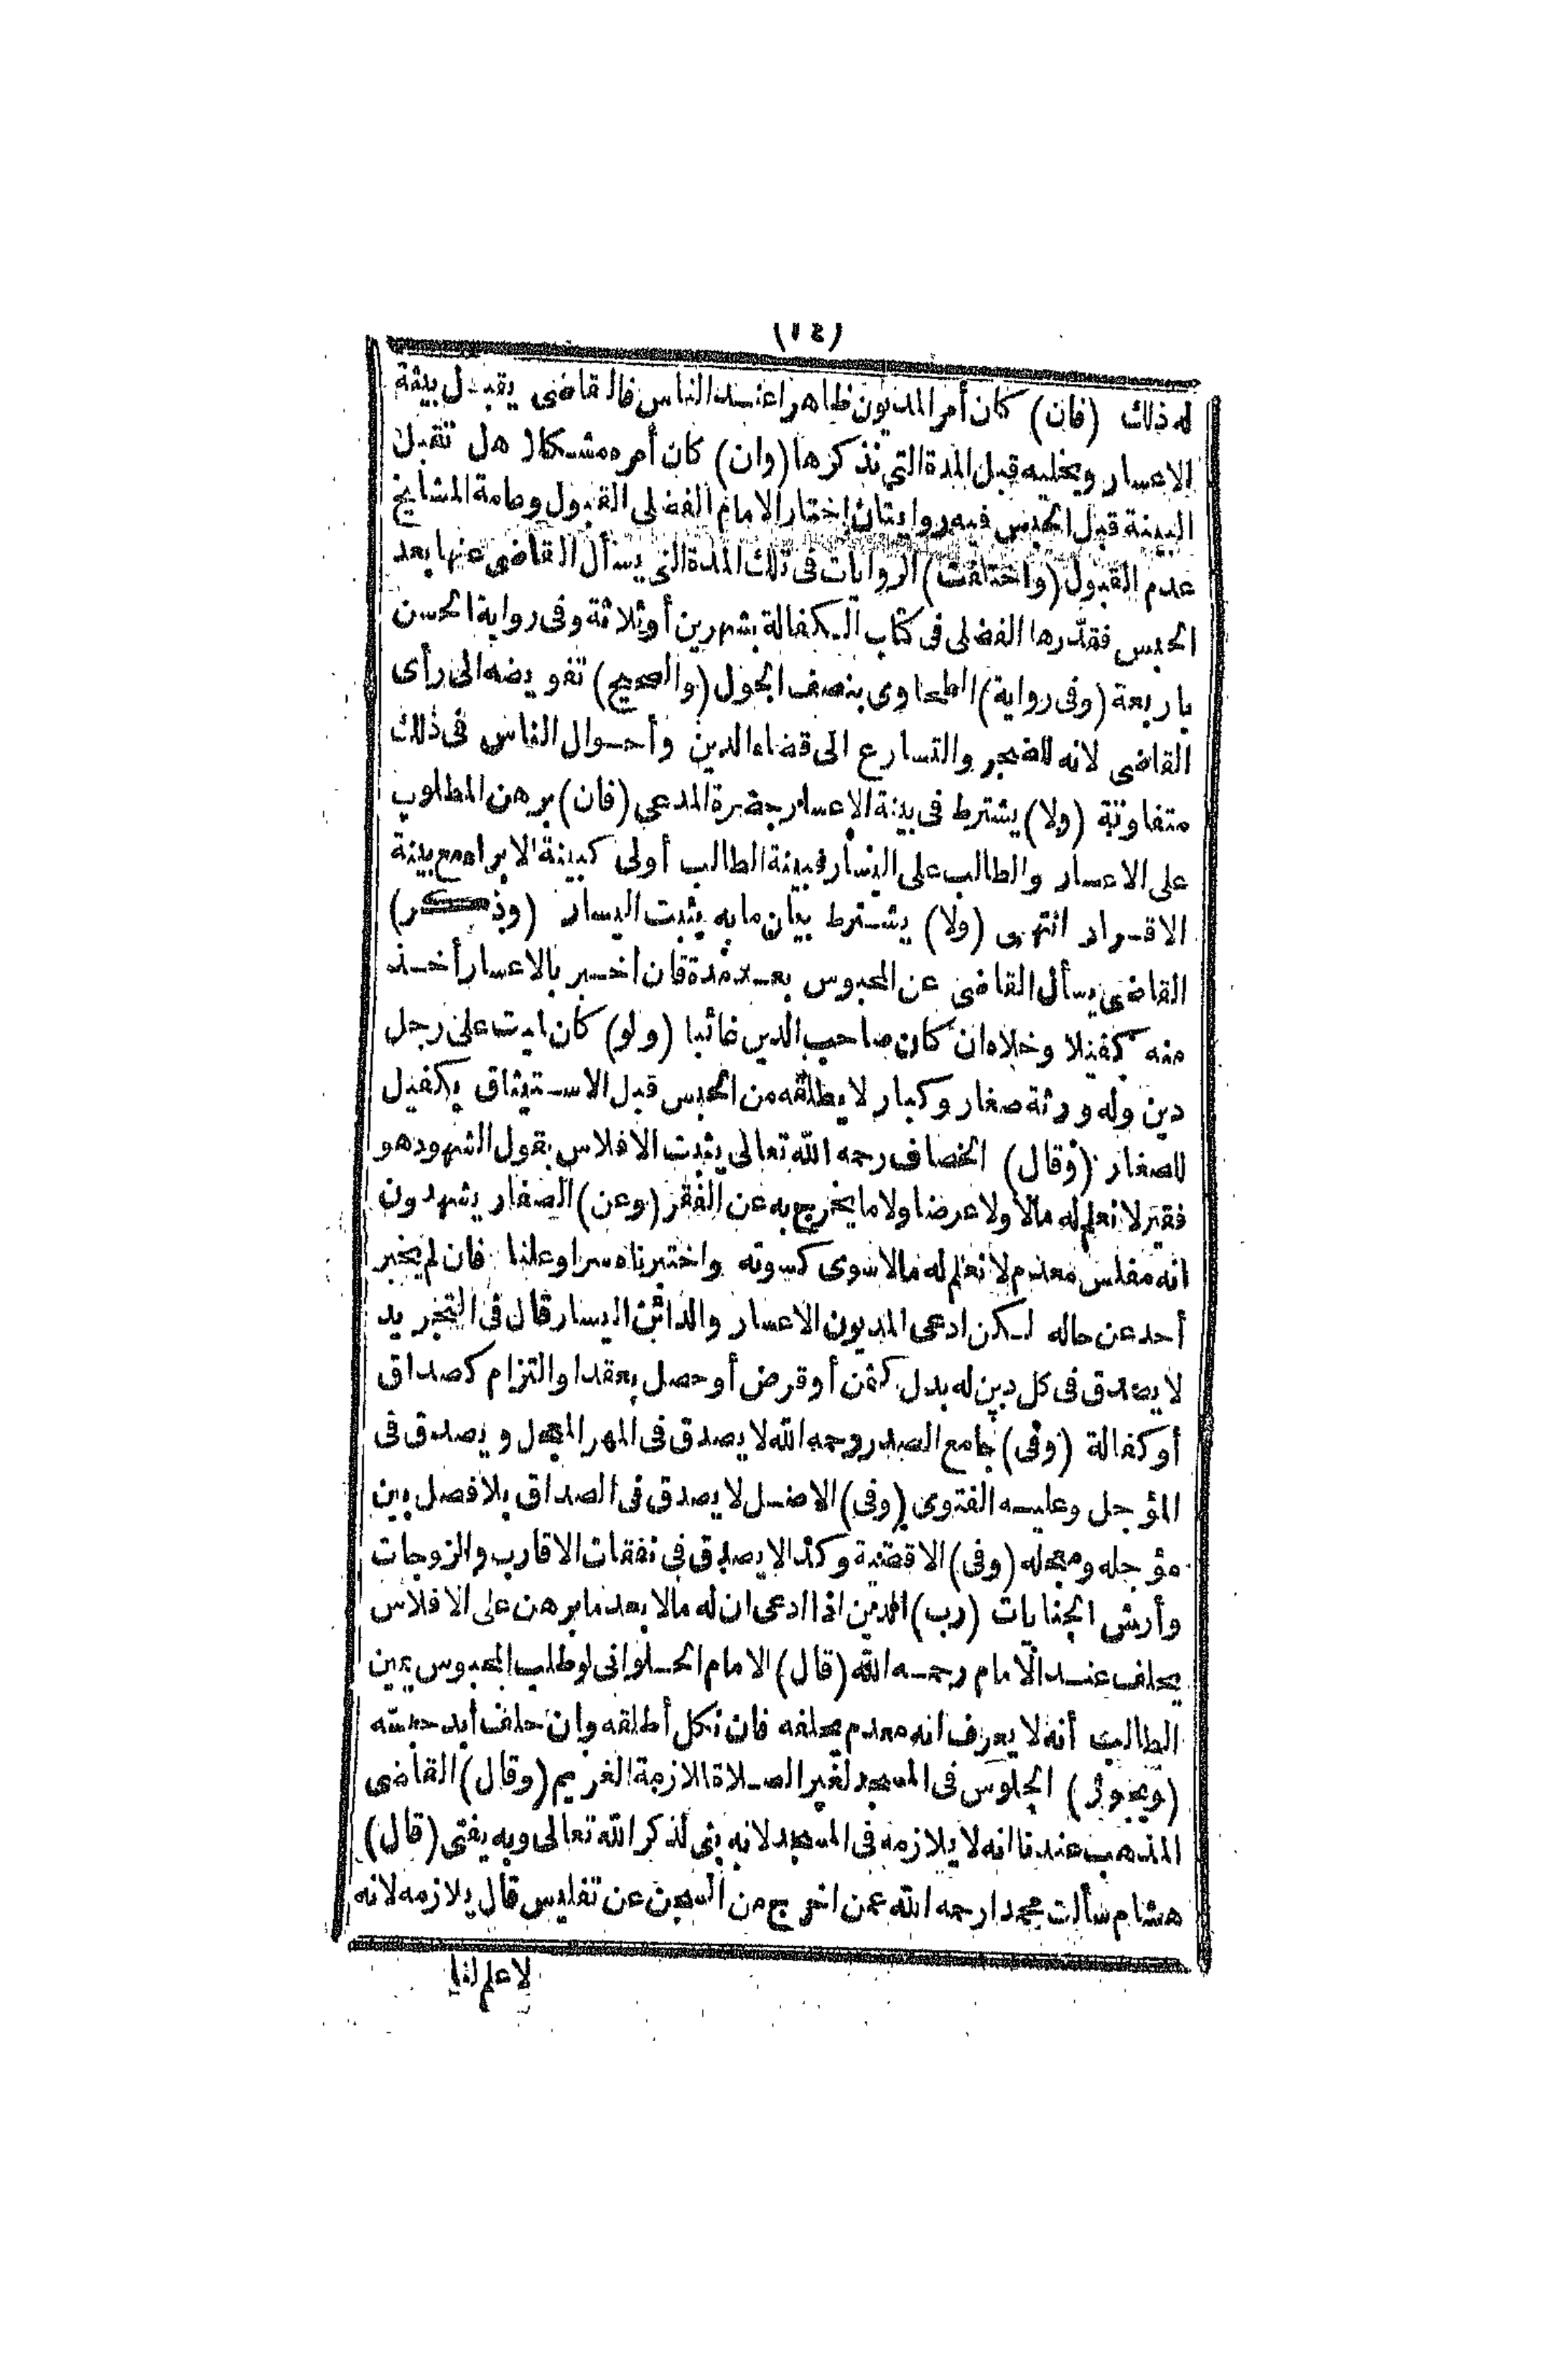 (١٤)
له ذلك (فان) كان أمر المديون ظاهرا عند الناس فالقاضى يقبل بينة
الاعسار ويخليه قبل المدة التى نذكرها (وان) كان أمره مشكلا هل تقبل
البينة قبل الحبس فيه روايتان اختار الامام الفضلى القبول وعامة المشايخ
عدم القبول (واختلفت) الروايات فى تلك المدة التى يسأل القاضى عنها بعد
الحبس فقدّرها الفضلى فى كتاب الكفالة بشهرين أو ثلاثة وفى رواية الحسن
باربعة (وفى رواية) الطحاوى بنصف الحول (والصحيح) تفويضه الى رأى
القاضى لانه للضجر والتسارع الى قضاء الدين وأحوال الناس فى ذلك
متفاوتة (ولا) يشترط فى بينة الاعسار حضرة المدعى (فان) برهن المطلوب
على الاعسار والطالب على اليسار فبينة الطالب أولى كبينة الابراء مع بينة
الاقرار انتهى (ولا) يشترط بيان ما به يثبت اليسار (وذكر)
القاضى يسأل القاضى عن المحبوس بعد مدة فان اخبر بالاعسار أخذ
منه كفيلا وخلاه ان كان صاحب الدين غائبا (ولو) كان لميت على رجل
دين وله ورثة صغار وكبار لا يطلقه من الحبس قبل الاستيثاق بكفيل
للصغار (وقال) الخصاف رحمه الله تعالى يثبت الافلاس بقول الشهود هو
فقير لا نعلم له مالا ولا عرضا ولا ما يخرج به عن الفقر (وعن) الصفار يشهدون
انه مفلس معدم لا نعلم له مالا سوى كسوته واختبرناه سرا وعلنا فان لم يخبر
أحد عن حاله لكن ادعى المديون الاعسار والدائن اليسار قال فى التجريد
لا يصدق فى كل دين له بدل كثمن أو قرض أو حصل بعقد او التزام كصداق
أو كفالة (وفى) جامع الصدر رحمه الله لا يصدق فى المهر المعجل ويصدق فى
المؤجل وعليه الفتوى (وفى) الاصل لا يصدق فى الصداق بلا فصل بين
مؤجله ومعجله (وفى) الاقضية وكذا لا يصدق فى نفقات الاقارب والزوجات
وأرش الجنايات (رب) الدين اذا ادعى ان له مالا بعد ما برهن على الافلاس
يحلف عند الامام رحمه الله (قال) الامام الحلوانى لو طلب المحبوس يمين
الطالب أنه لا يعرف انه معدم يحلفه فان نكل أطلقه وان حلف أبد حبسه
(ويجوز) الجلوس فى المسجد لغير الصلاة لملازمة الغريم (وقال) القاضى
المذهب عندنا انه لا يلازمه فى المسجد لانه بنى لذكر الله تعالى وبه يفتى (قال)
هشام سألت محمدا رحمه الله عمن اخرج من السجن عن تفليس قال يلازمه لانه
لا علم لنا